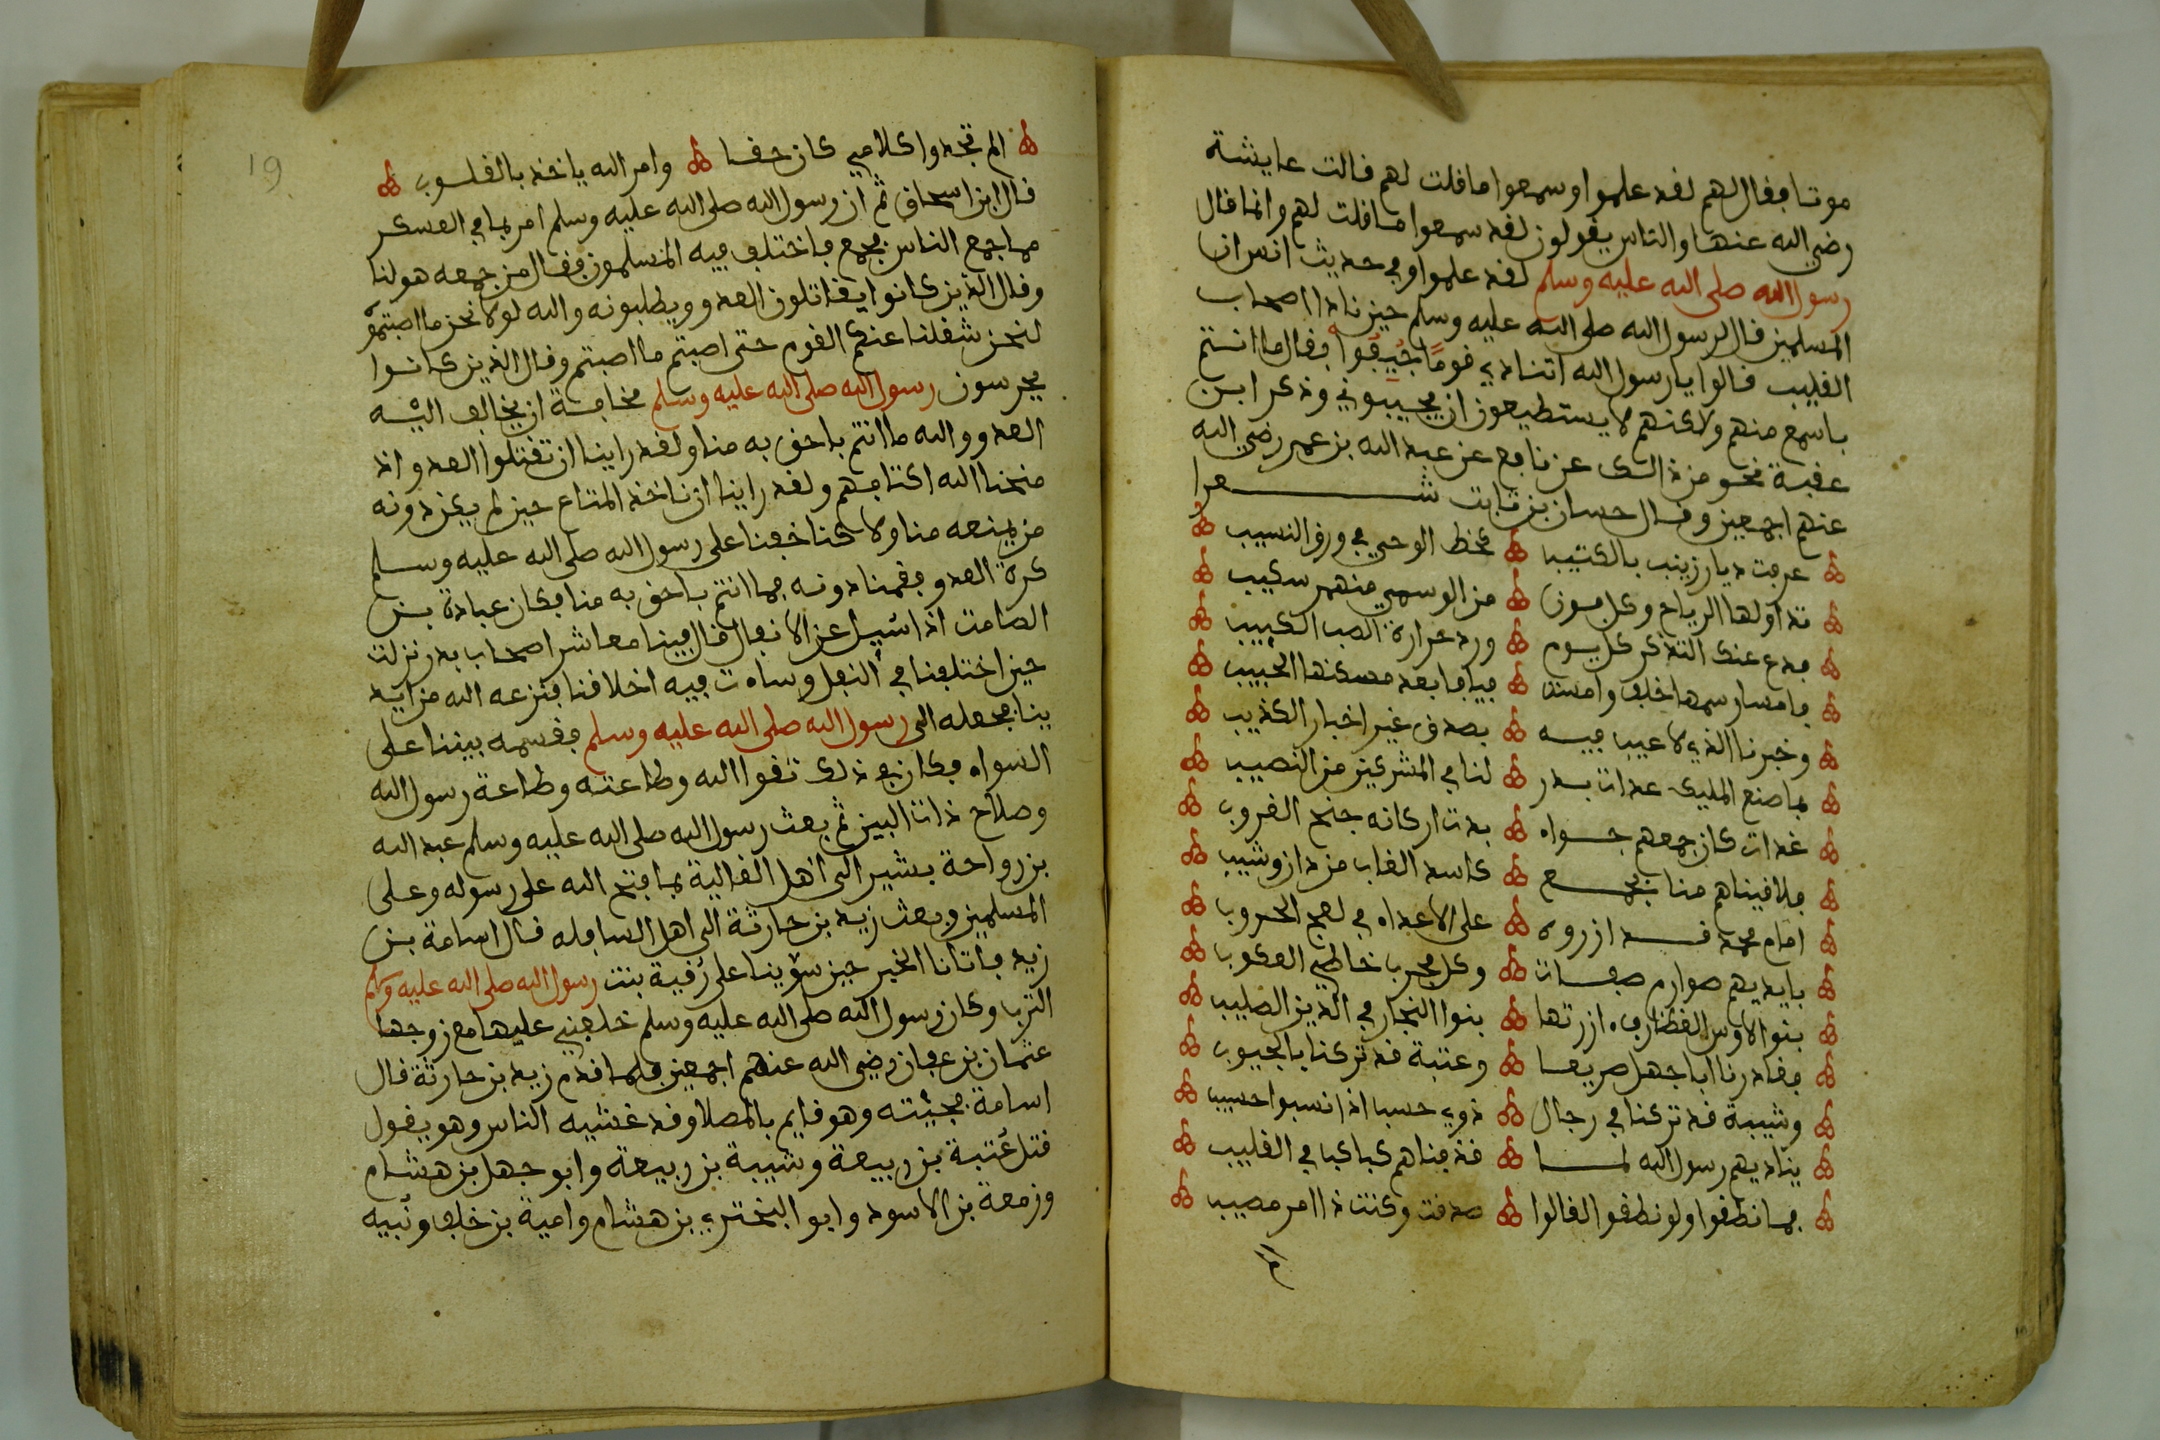 موتا فقال لهم لقد علموا وسمعوا ما قلت لهم قالت عايشة
رضي الله عنها والناس يقولون لقد سمعوا ما قلت لهم وانما قال
رسول الله صلى الله عليه وسلم لقد علموا وفي حديث انس ان
المسلمين قال لرسول الله صلى الله عليه وسلم حين نادا اصحاب
القليب قالوا يا رسول الله اتنادي قومًا جُيِّفُوا فقال ما انتم
باسمع منهم ولاكنهم لا يستطيعون ان يجيبوني وذكر ابن
عقبة نحو من ذالك عن نافع عن عبد الله بن عمر رضي الله
عنهم اجمعين وقال حسان بن ثابت شعرا
عرفت ديار زينب بالكتيبا كخط الوحي في ورق النسيب
تداولها الرياح وكل جون من الوسمي منهمر سكيب
فدع عنك التذكر كل يوم ورد حرارة الصب الكييب
فامسا رسمها خلق وامست يبابا بعد مسكنها الحبيب
وخبرنا الذي لا عيب فيه بصدق غير اخبار الكذيب
بما صنع المليك عدات بدر لنا في المشركين من النصيب
غدات كان جمعهم حراه بدت اركانه جنح الغروب
فلاقيناهم منا بجمع كاسد الغاب مردان وشيب
امام محمد قد ازروه على الاعداء في لفح الحروب
بايديهم صوارم صفات وكل مجرب خاطي العكوب
بنوا الاوس الغطارف ازرتها بنوا النجار في الدين الصليب
فغادرنا ابا جهل صريعا وعتبة قد تركنا بالجبوب
وشيبة قد تركنا في رجال ذوي حسب اذا نسبوا حسيب
يناديهم رسول الله لما قذفناهم كباكبا في القليب
فما نطقوا ولو نطقوا لقالوا صدقت وكنت ذا امر مصيب
الم تجدوا كلامي كان حقا وامر الله ياخذ بالقلوب
قال ابن اسحاق ثم ان رسول الله صلى الله عليه وسلم امر بما في العسكر
مما جمع الناس فجمع فاختلف فيه المسلمون فقال من جمعه هو لنا
وقال الذين كانوا يقاتلون العدو ويطلبونه والله لولا نحن ما اصبتموه
لنحن شغلنا عنكم القوم حتى اصبتم ما اصبتم وقال الذين كانوا
يحرسون رسول الله صلى الله عليه وسلم مخافة ان يخالف اليه
العدو والله ما انتم باحق به منا ولقد راينا ان تقتلوا العدو اذ
منحنا الله اكتافهم ولقد راينا ان ناخذ المتاع حين لم يكن دونه
من يمنعه منا ولاكنا خفنا على رسول الله صلى الله عليه وسلم
كرة العدو فقمنا دونه فما انتم باحق به منا فكان عبادة بن
الصامت اذا سُيل عن الانفال قال فينا معاشر اصحاب بدر نزلت
حين اختلفنا في النفل وساءت فيه اخلاقنا فنزعه الله من ايد
ينا فجعله الى رسول الله صلى الله عليه وسلم فقسمه بيننا على
السواء فكان في ذلك تقوا الله وطاعته وطاعة رسول الله
وصلاح ذات البين ثم بعث رسول الله صلى الله عليه وسلم عبد الله
بن رواحة بشير الى اهل العالية بما فتح الله على رسوله وعلى
المسلمين وبعث زيد بن حارثة الى اهل السافله قال اسامة بن
زيد فاتانا الخبر حين سوّينا على رقية بنت رسول الله صلى الله عليه وسلم
التراب وكان رسول الله صلى الله عليه وسلم خلفني عليها مع زوجها
عثمان بن عفان رضي الله عنهم اجمعين فلما قدم زيد بن حارثة قال
اسامة فجيئته وهو قايم بالمصلا وقد غشيه الناس وهو يقول
قتل عُتبة بن ربيعة وشيبة بن ربيعة وابو جهل بن هشام
وزمعة بن الاسود وابو البختري بن هشام وامية بن خلف ونُبيه
19